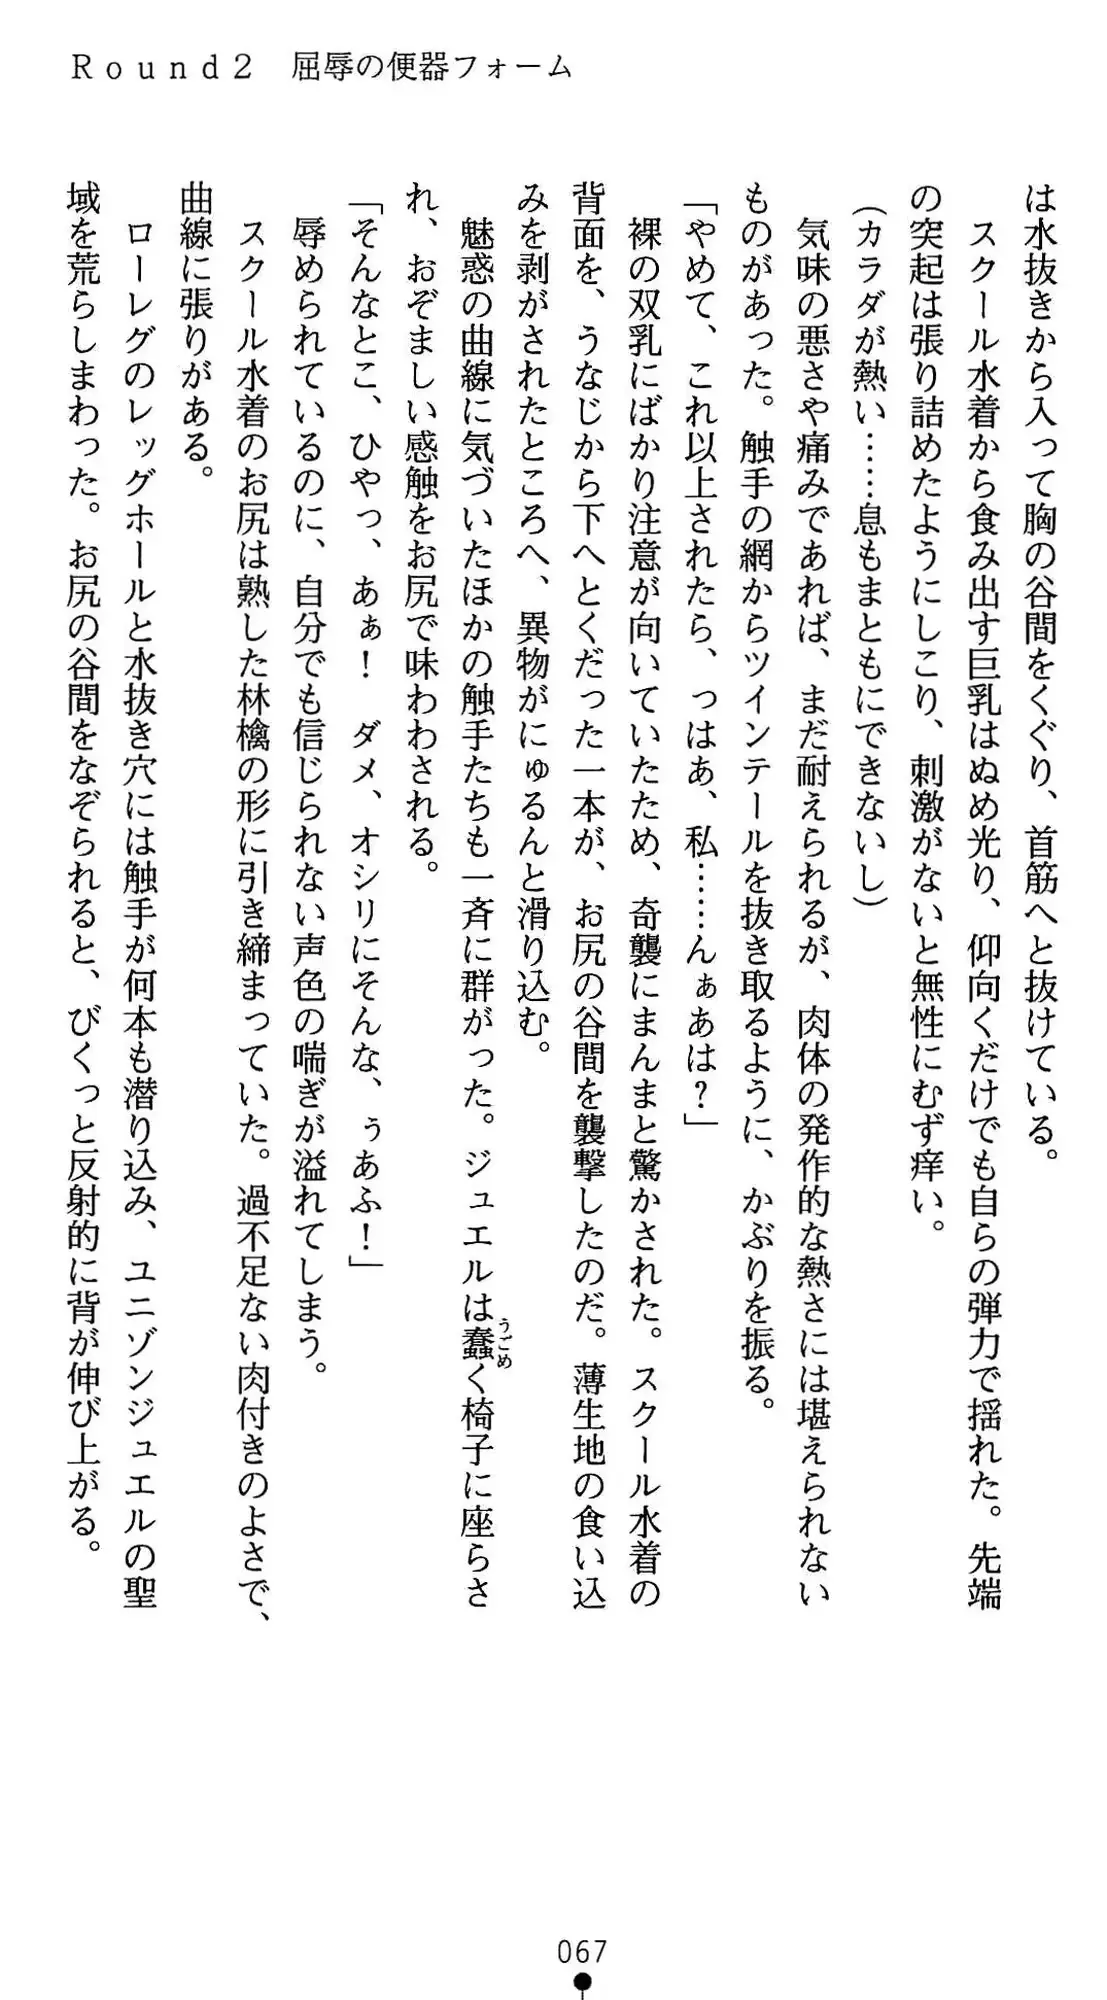 Round2　屈辱の便器フォーム
は水抜きから入って胸の谷間をくぐり、首筋へと抜けている。
　スクール水着から食み出す巨乳はぬめ光り、仰向くだけでも自らの弾力で揺れた。先端
の突起は張り詰めたようにしこり、刺激がないと無性にむず痒い。
（カラダが熱い……息もまともにできないし）
　気味の悪さや痛みであれば、まだ耐えられるが、肉体の発作的な熱さには堪えられない
ものがあった。触手の網からツインテールを抜き取るように、かぶりを振る。
「やめて、これ以上されたら、っはあ、私……んぁあは？」
　裸の双乳にばかり注意が向いていたため、奇襲にまんまと驚かされた。スクール水着の
背面を、うなじから下へとくだった一本が、お尻の谷間を襲撃したのだ。薄生地の食い込
みを剥がされたところへ、異物がにゅるんと滑り込む。
　魅惑の曲線に気づいたほかの触手たちも一斉に群がった。ジュエルは蠢く椅子に座らさ
うごめ
れ、おぞましい感触をお尻で味わわされる。
「そんなとこ、ひやっ、あぁ！　ダメ、オシリにそんな、ぅあふ！」
　辱められているのに、自分でも信じられない声色の喘ぎが溢れてしまう。
　スクール水着のお尻は熟した林檎の形に引き締まっていた。過不足ない肉付きのよさで、
曲線に張りがある。
　ローレグのレッグホールと水抜き穴には触手が何本も潜り込み、ユニゾンジュエルの聖
域を荒らしまわった。お尻の谷間をなぞられると、びくっと反射的に背が伸び上がる。
067